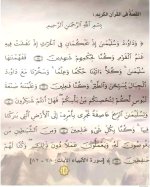 القصة في القرآن الكريم:
بِسْمِ اللَّهِ الرَّحْمَنِ الرَّحِيمِ
﴿ وَدَاوُدَ وَسُلَيْمَنَ إِذْ يَحْكُمَانِ فِي الْحَرْثِ إِذْ نَفَشَتْ فِيهِ
غَنَمُ الْقَوْمِ وَكُنَّا لِحُكْمِهِمْ شَهِدِينَ فَفَهَّمْنَهَا
سُلَيْمَنَ وَكُلًّا ءَاتَيْنَا حُكْمًا وَعِلْمًا وَسَخَّرْنَا مَعَ دَاوُدَ
الْجِبَالَ يُسَبِّحْنَ وَالطَّيْرَ وَكُنَّا فَعِلِينَ وَعَلَّمْنَهُ
صَنْعَةَ لَبُوسٍ لَّكُمْ لِتُحْصِنَكُم مِّن بَأْسِكُمْ فَهَلْ أَنتُمْ شَكِرُونَ
وَلِسُلَيْمَنَ الرِّيحَ عَاصِفَةً تَجْرِي بِأَمْرِهِ إِلَى الْأَرْضِ الَّتِي
بَرَكْنَا فِيهَا وَكُنَّا بِكُلِّ شَيْءٍ عَلِمِينَ وَمِنَ الشَّيَطِينِ مَن
يَغُوصُونَ لَهُ وَيَعْمَلُونَ عَمَلًا دُونَ ذَلِكَ وَكُنَّا لَهُمْ
حَفِظِينَ ﴾ [سورة الأنبياء الآيات: ٧٨ - ٨٢]